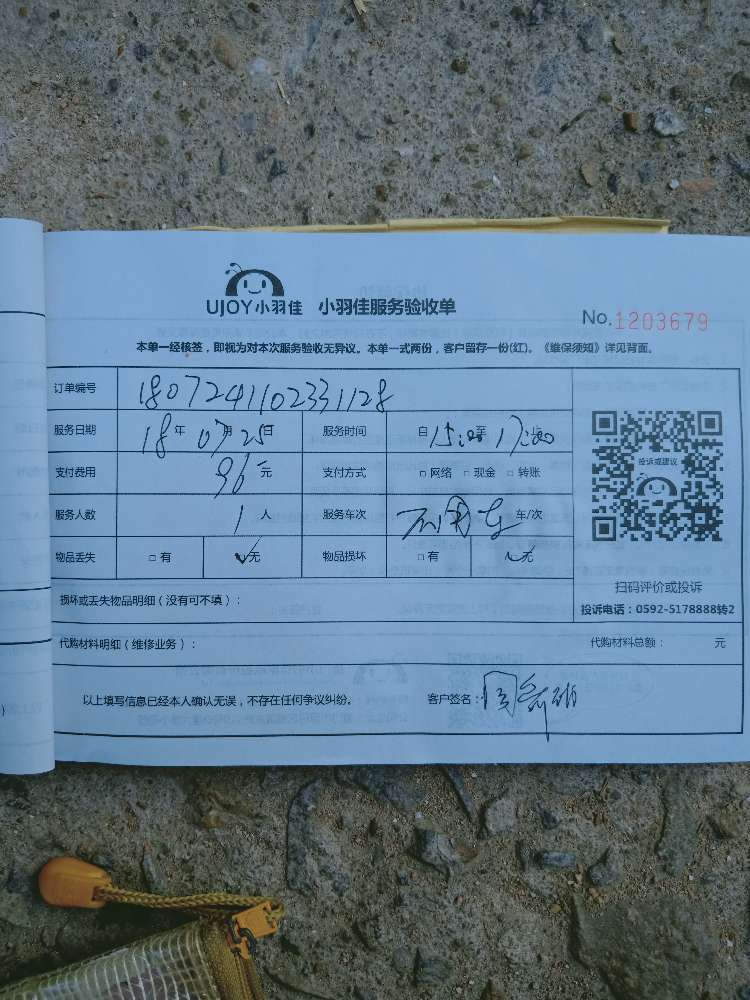 UJOY小羽佳 小羽佳服务验收单
No.1203679
本单一经核签，即视为对本次服务验收无异议。本单一式两份，客户留存一份(红)。《维保须知》详见背面。
订单编号 180724110233​1128
服务日期 18年07月25日 服务时间 自15:00至17:00
支付费用 96元 支付方式 □网络 □现金 □转账
服务人数 1人 服务车次 不用车 车/次
物品丢失 □有 ✓无 物品损坏 □有 ✓无
投诉或建议
扫码评价或投诉
投诉电话：0592-5178888转2
损坏或丢失物品明细（没有可不填）：
代购材料明细（维修业务）： 代购材料总额： 元
以上填写信息已经本人确认无误，不存在任何争议纠纷。 客户签名：